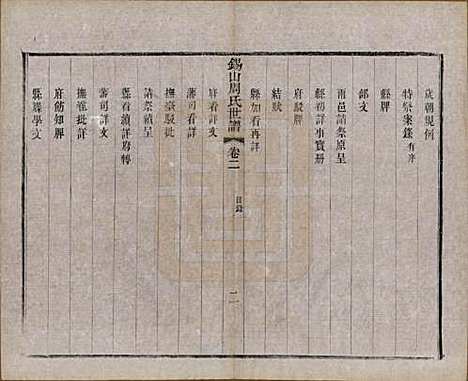 歲朝現例
特祭案錄有序
縣牌
鄉文
兩邑請祭原呈
縣詳事實册
府駁牌
結狀
縣加看再詳
錫山周氏世譜 卷二 目錄 二
府看詳文
藩司看詳
撫臺駁批
請祭續呈
縣看續詳府轉
藩司詳文
撫院批詳
府飭知牌
縣牒學文